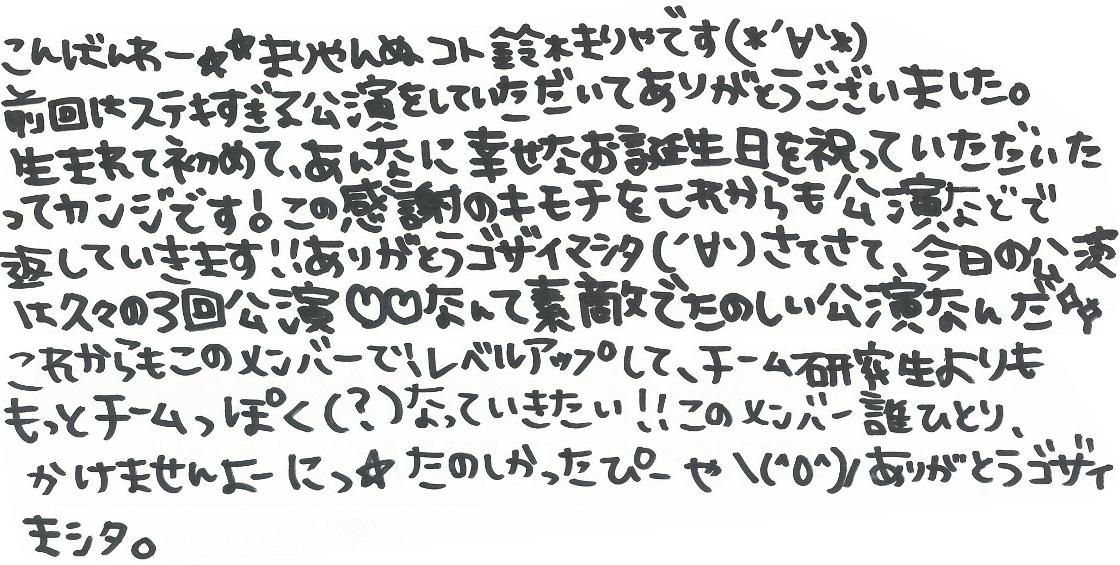 こんばんわー☆☆まりやんぬコト鈴木まりやです(*´∀`*)
前回はステキすぎる公演をしていただいてありがとうございました。
生まれて初めて、あんなに幸せなお誕生日を祝っていただいた
ってカンジです!この感謝のキモチをこれからも公演などで
返していきます!!ありがとうゴザイマシタ(´∀`)さてさて、今日の公演
は久々の3回公演♡♡なんて素敵でたのしい公演なんだ☆☆
これからもこのメンバーで!レベルアップして、チーム研究生よりも
もっとチームっぽく(?)なっていきたい!!このメンバー誰ひとり、
かけませんよーにっ☆たのしかったぴーや\(^O^)/ありがとうゴザイ
まシタ。